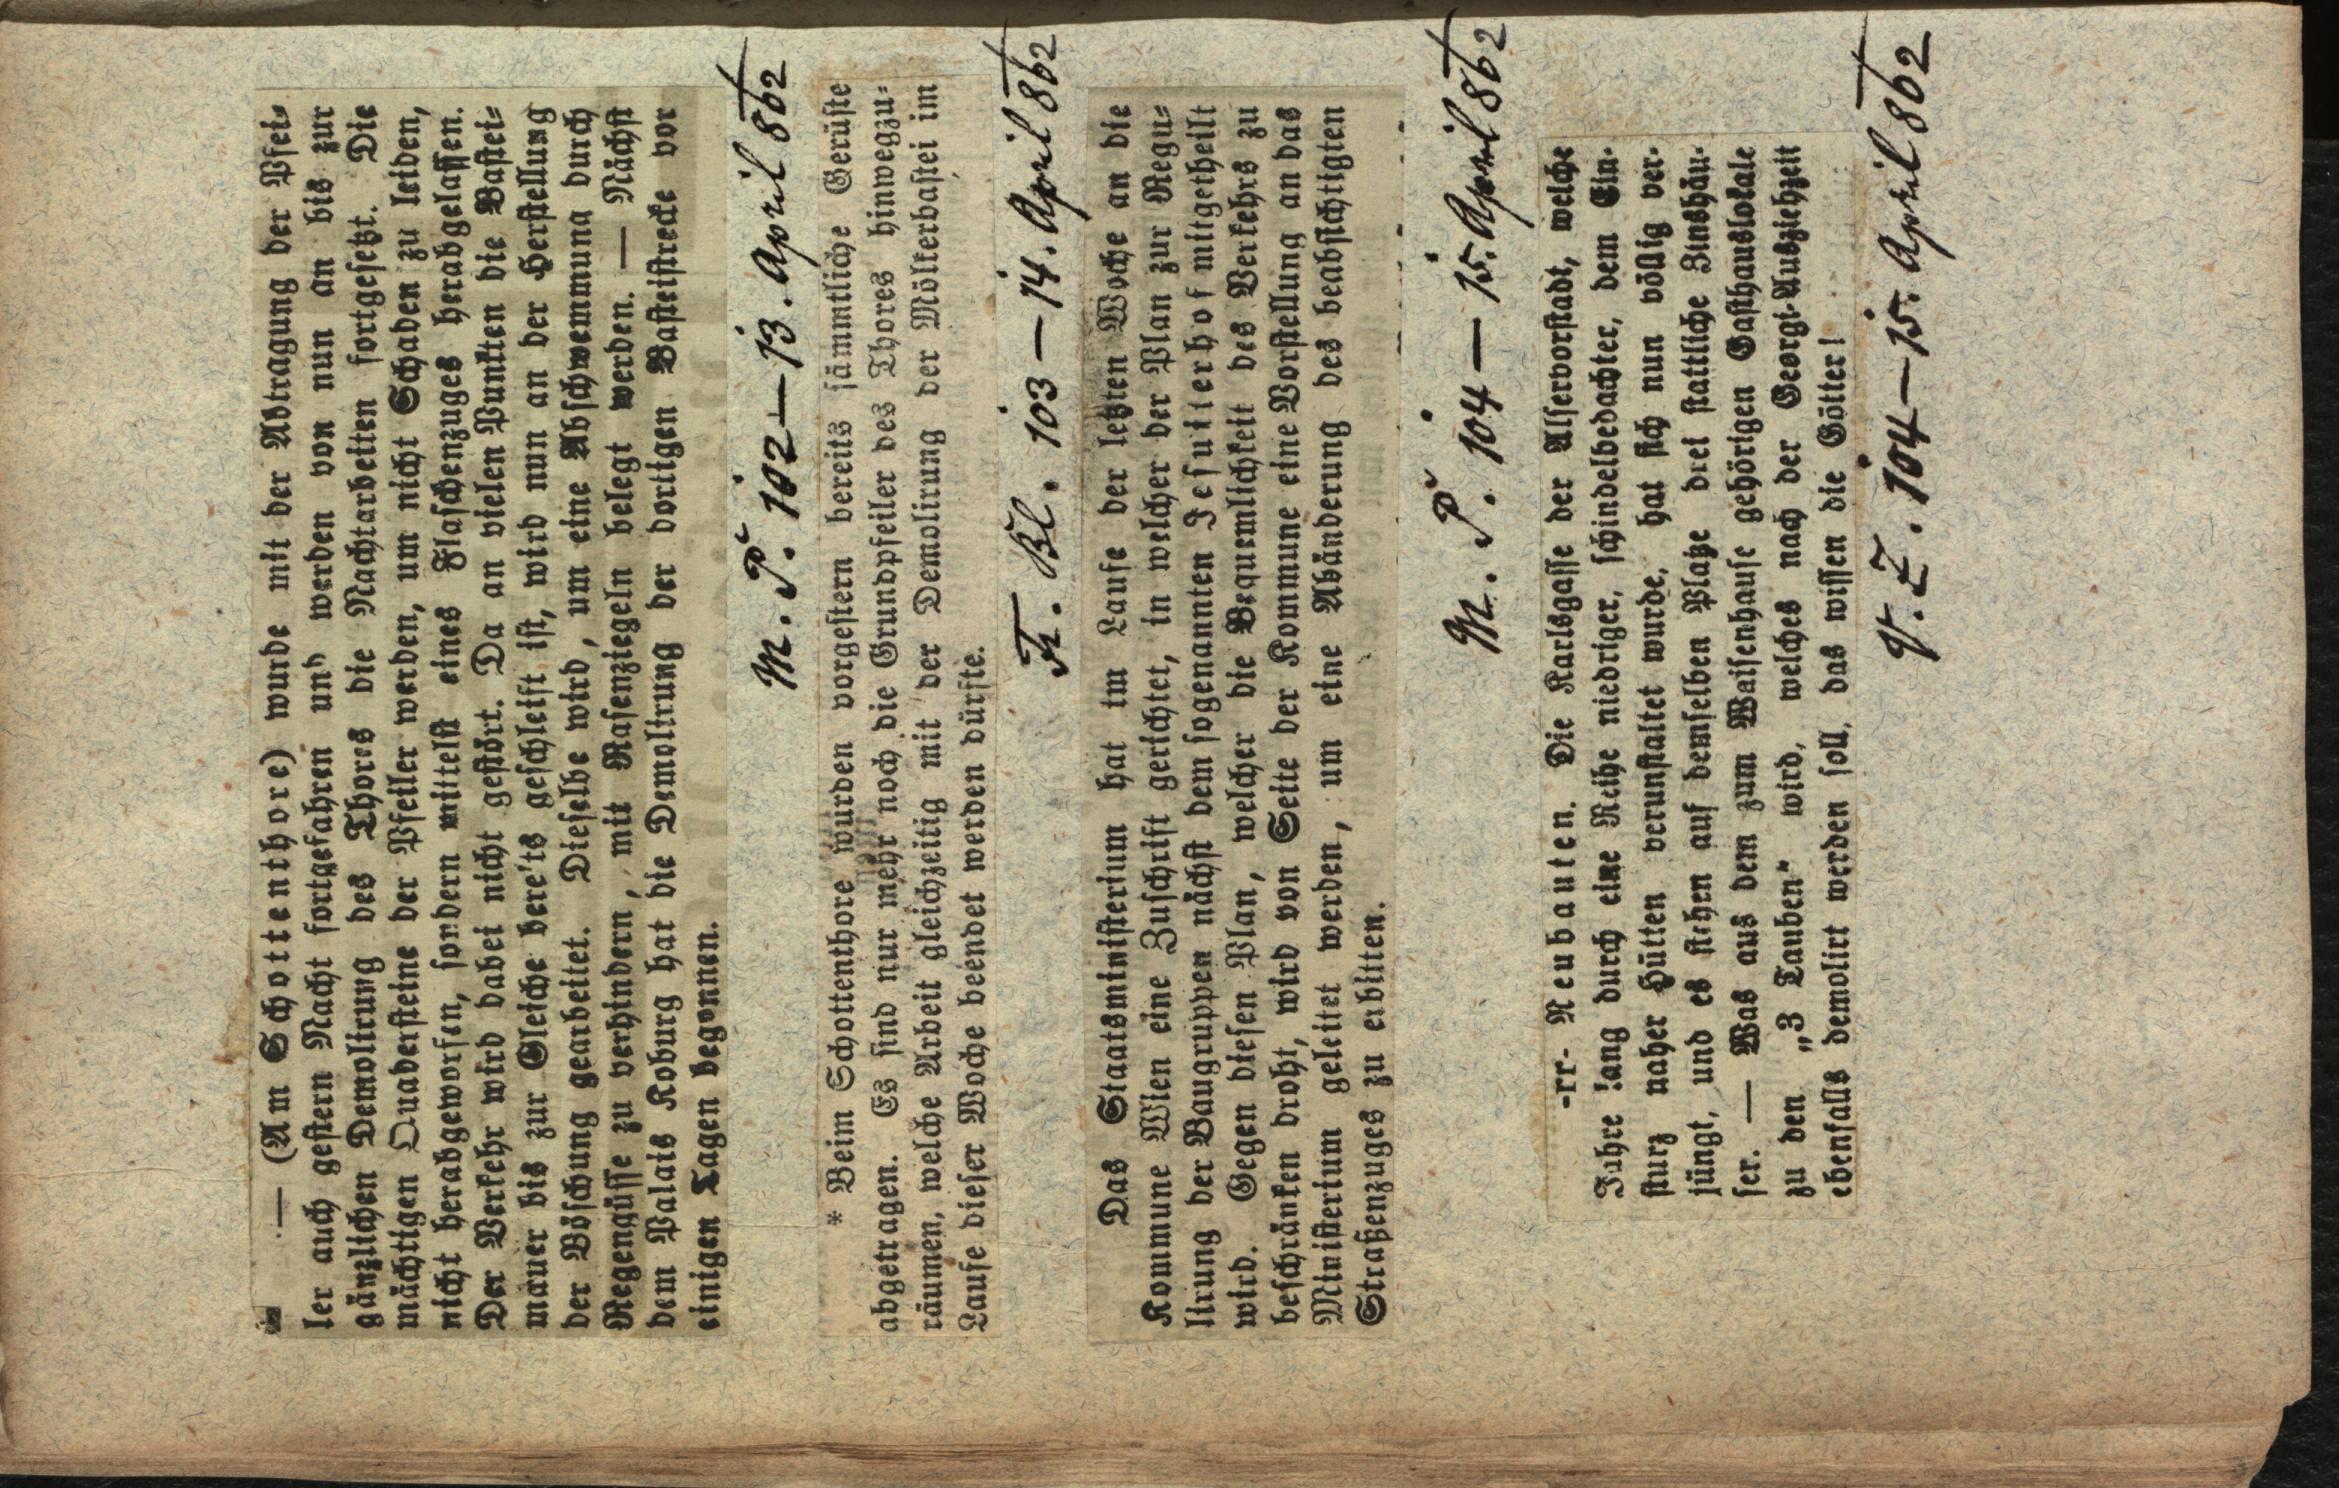 — (Am Schottenthore) wurde mit der Abtragung der Pfei-
ler auch gestern Nacht fortgefahren und werden von nun an bis zur
gänzlichen Demolirung des Thores die Nachtarbeiten fortgesetzt. Die
mächtigen Quadersteine der Pfeiler werden, um nicht Schaden zu leiden,
nicht herabgeworfen, sondern mittelst eines Flaschenzuges herabgelassen.
Der Verkehr wird dabei nicht gestört. Da an vielen Punkten die Bastei-
mauer bis zur Gleiche bereits geschleift ist, wird nun an der Herstellung
der Böschung gearbeitet. Dieselbe wird, um eine Abschwemmung durch
Regengüsse zu verhindern, mit Rasenziegeln belegt werden. — Nächst
dem Palais Koburg hat die Demolirung der dortigen Basteistrecke vor
einigen Tagen begonnen.
M. P. 102 — 13. April 862
* Beim Schottenthore wurden vorgestern bereits sämmtliche Gerüste
abgetragen. Es sind nur mehr noch die Grundpfeiler des Thores hinwegzu-
räumen, welche Arbeit gleichzeitig mit der Demolirung der Mölkerbastei im
Laufe dieser Woche beendet werden dürfte.
Bl. 103 — 14. April 862
Das Staatsministerium hat im Laufe der letzten Woche an die
Kommune Wien eine Zuschrift gerichtet, in welcher der Plan zur Regu-
lirung der Baugruppen nächst dem sogenannten Jesuiterhof mitgetheilt
wird. Gegen diesen Plan, welcher die Bequemlichkeit des Verkehrs zu
beschränken droht, wird von Seite der Kommune eine Vorstellung an das
Ministerium geleitet werden, um eine Abänderung des beabsichtigten
Straßenzuges zu erbitten.
M. P. 104 — 15. April 862
-rr- Neubauten. Die Karlsgasse der Alservorstadt, welche
Jahre lang durch eine Reihe niedriger, schindelbedachter, dem Ein-
sturz naher Hütten verunstaltet wurde, hat sich nun völlig ver-
jüngt, und es stehen auf demselben Platze drei stattliche Zinshäu-
ser. — Was aus dem zum Waisenhause gehörigen Gasthauslokale
zu den „3 Tauben“ wird, welches nach der Georgi-Ausziehzeit
ebenfalls demolirt werden soll, das wissen die Götter!
V. Z. 104 — 15. April 862